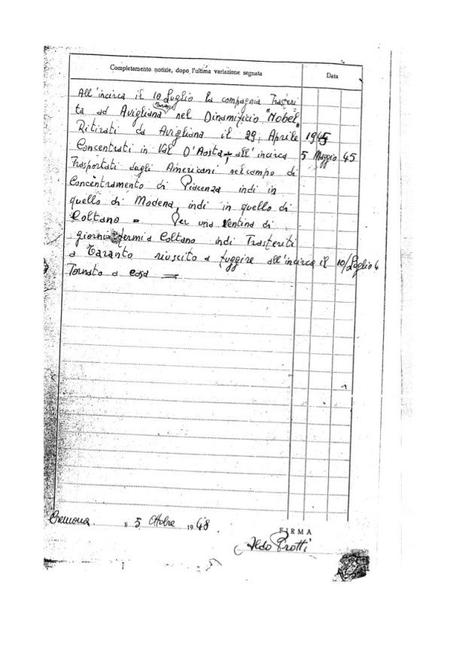 Completamento notizie, dopo l'ultima variazione segnata
Data
All'incirca il 10 Luglio la compagnia Trasferi
ta ad Avigliana nel Dinamificio "Nobel"
Ritirati da Avigliana il 29 Aprile 1945
Concentrati in Val D'Aosta, all'incirca 5 Maggio 45
Trasportati dagli Americani nel campo di
Concentramento di Piacenza indi in
quello di Modena, indi in quello di
Coltano = Per una ventina di
giorni fermi a Coltano indi Trasferiti
a Taranto riuscito a fuggire all'incirca il 10/Luglio 4
Tornato a casa =
Cremona li 5 Ottobre 1948
FIRMA
Aldo Protti